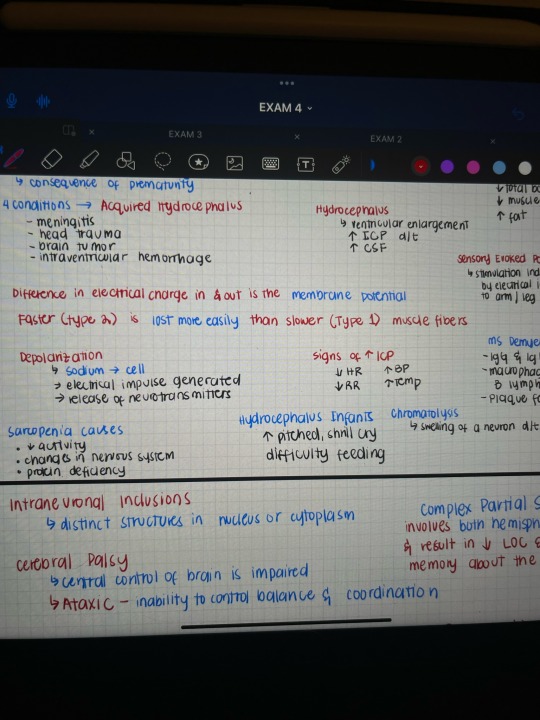 EXAM 4
EXAM 3
EXAM 2
↳ consequence of prematurity
4 conditions → Acquired Hydrocephalus
- meningitis
- head trauma
- brain tumor
- intraventricular hemorrhage
Hydrocephalus
↳ ventricular enlargement
↑ ICP d/t
↑ CSF
↓ total
↓ muscle
↑ fat
Sensory Evoked
↳ stimulation
by electrical
to arm/leg
Difference in electrical charge in & out is the membrane potential
Faster (type 2) is lost more easily than slower (Type 1) muscle fibers
Depolarization
↳ sodium → cell
→ electrical impulse generated
→ release of neurotransmitters
signs of ↑ ICP
↓ HR ↑ BP
↓ RR ↑ Temp
MS
- IgG &
- macrophag
B lymph
- Plaque
Hydrocephalus Infants
↑ pitched, shrill cry
difficulty feeding
Chromatolysis
↳ swelling of a neuron d/t
Sarcopenia causes
• ↓ activity
• changes in nervous system
• protein deficiency
Intraneuronal Inclusions
↳ distinct structures in nucleus or cytoplasm
Complex Partial S
involves both hemisph
& result in ↓ LOC &
memory about the
Cerebral Palsy
↳ central control of brain is impaired
↳ Ataxic - inability to control balance & coordination